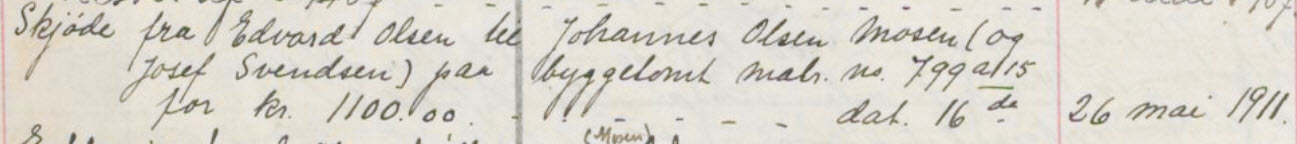 Skjöde fra Edvard Olsen til Johannes Olsen Mosen (og
Josef Svendsen) paa byggetomt matr. no. 799a/15
for kr. 1100.00. - - - - - dat. 16 ds. 26 mai 1911.
(Mosen)